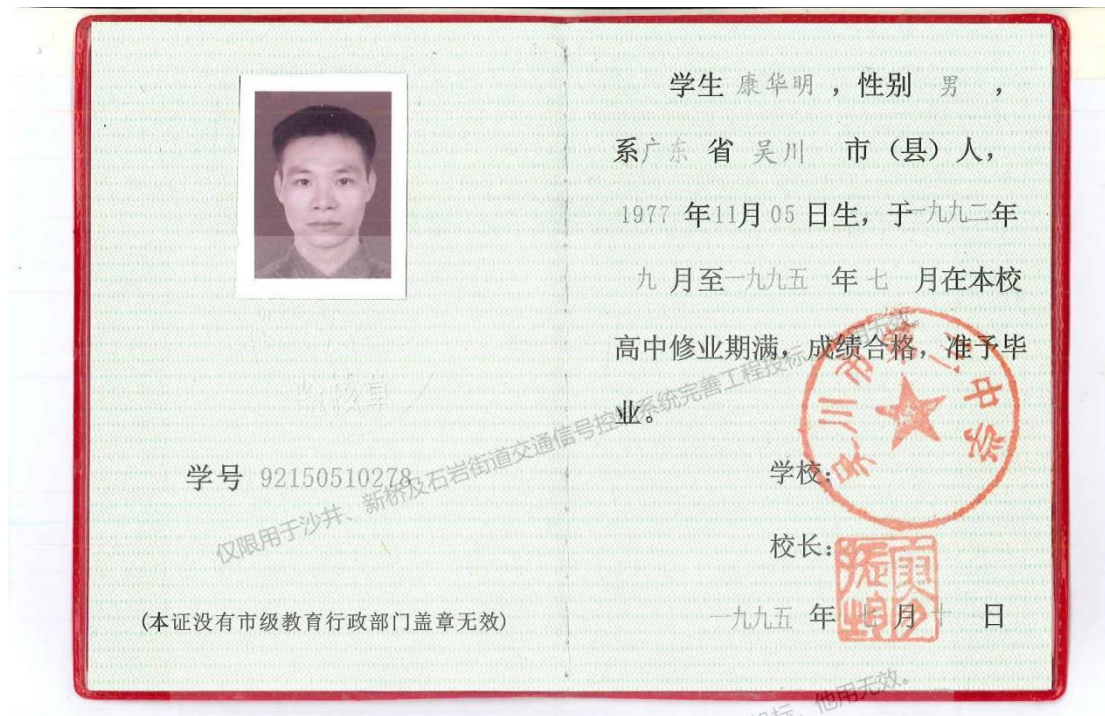 学号 92150510278
(本证没有市级教育行政部门盖章无效)
学生 康华明 ，性别 男 ，
系广东 省 吴川 市（县）人，
1977 年11月 05 日生，于一九九二年
九 月至一九九五 年 七 月在本校
高中修业期满，成绩合格，准予毕
业。
学校：
校长：
一九九五 年 七 月 十 日
吴川市第二中学
仅限用于沙井、新桥及石岩街道交通信号控制系统完善工程投标，他用无效。
投标，他用无效。